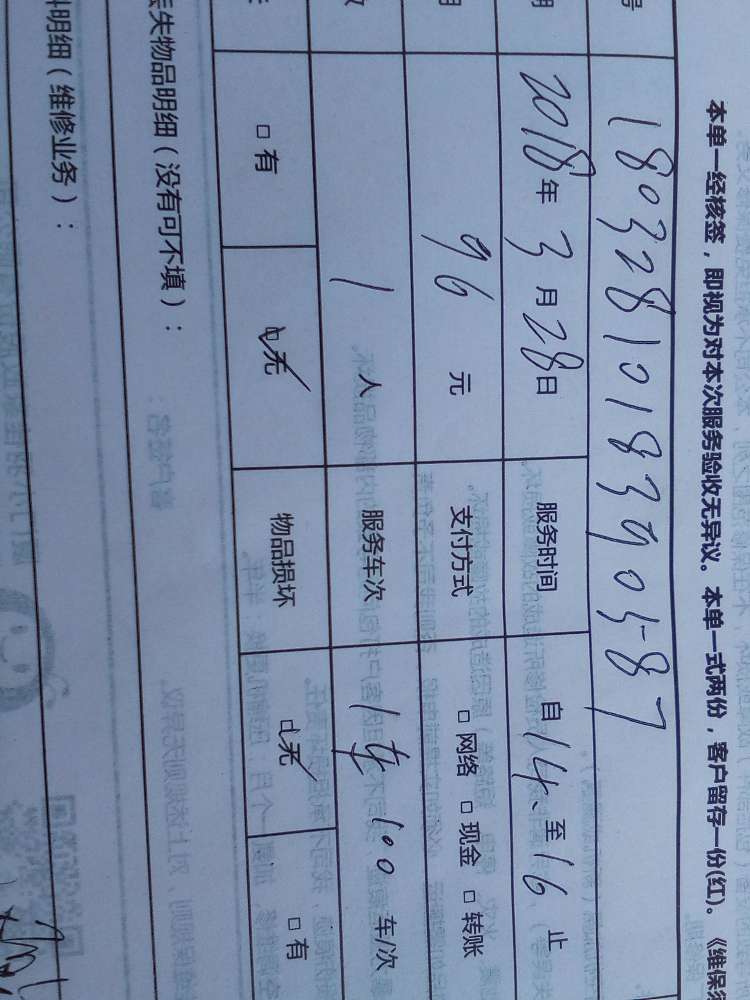 本单一经核签，即视为对本次服务验收无异议。本单一式两份，客户留存一份(红)。《维保须
号 18032810183990587
期 2018年3月28日 服务时间 自14、至16止
用 96元 支付方式 □网络 □现金 □转账
数 1人 服务车次 1车 100 车/次
□有 ☑无 物品损坏 ☑无 □有
丢失物品明细（没有可不填）：
料明细（维修业务）：